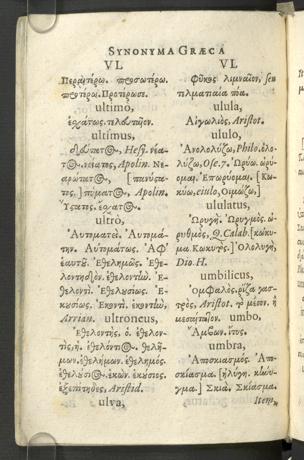 SYNONYMA GRÆCA
VL
Περαιτέρω. προσωτέρω.
πορρωτέρω. Προτέρωσε.
ultimò,
ἐσχάτως. τελευταῖον.
ultimus,
Hesy. νέα-
τος. νείατος, Apolin. Νε-
πύματος, Apolin.
Ὕστατος. ἔσχατος.
ultrò,
Αὐτοματεί. Αὐτομά-
την. Αὐτομάτως. Ἀφ'
ἑαυτοῦ. Ἐθελημῶς. Ἐθε-
λοντηδόν. ἐθελοντί. Ἐ-
θελοντί. Ἐθελουσίως. Ἑ-
κουσίως. Ἑκοντί. ἑκοντί,
Arrian. ultroneus,
Ἐθελοντής, ὁ. ἐθελον-
τίς, ἡ. ἐθελόντιος. θελή-
μων. ἐθελήμων. ἐθελημός.
ἐθελούσιος. ἑκών. ἑκούσιος.
ἐξεπίτηδες, Aristid.
ulva,
VL
Φῦκος λιμναῖον,
τελματιαῖα
ulula,
Αἰγωλιός, Aristot.
ululo,
Ἀνολολύζω, Philo, ὀλο-
λύζω, Ose. 7. Ὠρύω. ὠρύ-
ομαι. Ἐπωρύομαι. [Κω-
κύω, eiulo, Οἰμώζω,]
ululatus,
Ὠρυγή. Ὠρυγμός. ὠ-
ρυθμός, Q. Calab. [κώκυ-
μα. Κωκυτός.] Ὀλολυγή,
Dio. H.
umbilicus,
Ὀμφαλός, ῥίζα γασ-
τρός, Aristot. τὸ μέσον. ἢ
μεσαίτατον. umbo,
Ἄμβων. ἴτυς.
umbra,
Ἀποσκιασμός. Ἀπο-
σκίασμα. [ἠλύγη.
γμα.] Σκιά. Σκίασμα.
Item,